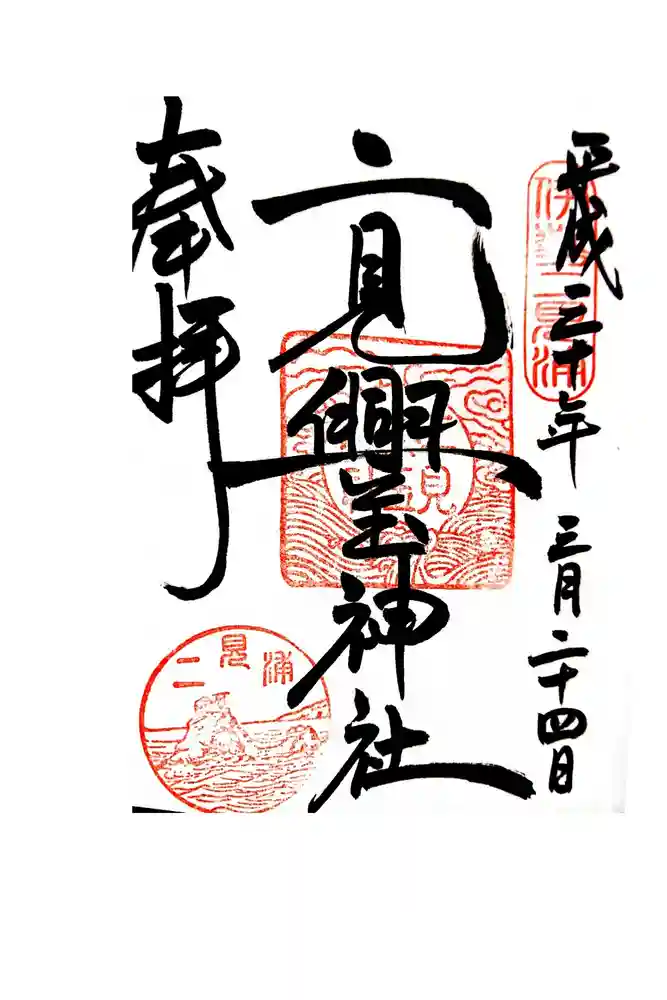 平成三十年三月二十四日
伊勢二見浦
二見興玉神社
奉拝
二見浦